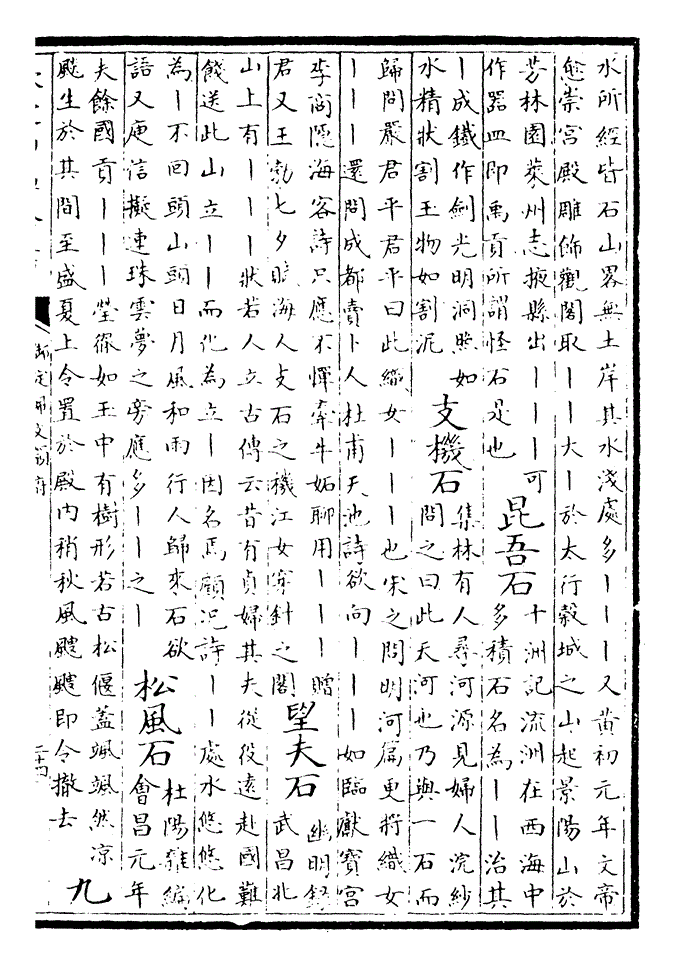 水所經皆石山畧無土岸其水淺處多｜｜｜又黃初元年文帝
愈崇宮殿雕飾觀閣取｜｜大｜於太行穀城之山起景陽山於
芳林園萊州志掖縣出｜｜｜｜可
作器皿即禹貢所謂怪石是也
昆吾石
十洲記流洲在西海中
多積石名為｜｜治其
｜成鐵作劍光明洞照如
水精狀割玉物如割泥
支機石
集林有人尋河源見婦人浣紗
問之曰此天河也乃與一石而
歸問嚴君平君平曰此織女｜｜｜也宋之問明河篇更將織女
｜｜｜還問成都賣卜人杜甫天池詩欲向｜｜｜如臨獻寶宮
李商隱海客詩只應不憚牽牛妬聊用｜｜｜贈
君又王勃七夕賦海人支石之機江女穿針之閣
望夫石
幽明錄
武昌北
山上有｜｜｜狀若人立古傳云昔有貞婦其夫從役遠赴國難
餞送此山立｜｜而化為立｜因名焉顧況詩｜｜處水悠悠化
為｜不回頭山頭日月風和雨行人歸來石欲
語又庾信擬連珠雲夢之旁應多｜｜之｜
松風石
杜陽雜編
會昌元年
夫餘國貢｜｜｜瑩徹如玉中有樹形若古松偃蓋颯颯然涼
飈生於其間至盛夏上令置於殿內稍秋風颼颼即令撤去
九
御定佩文韻府
二十四